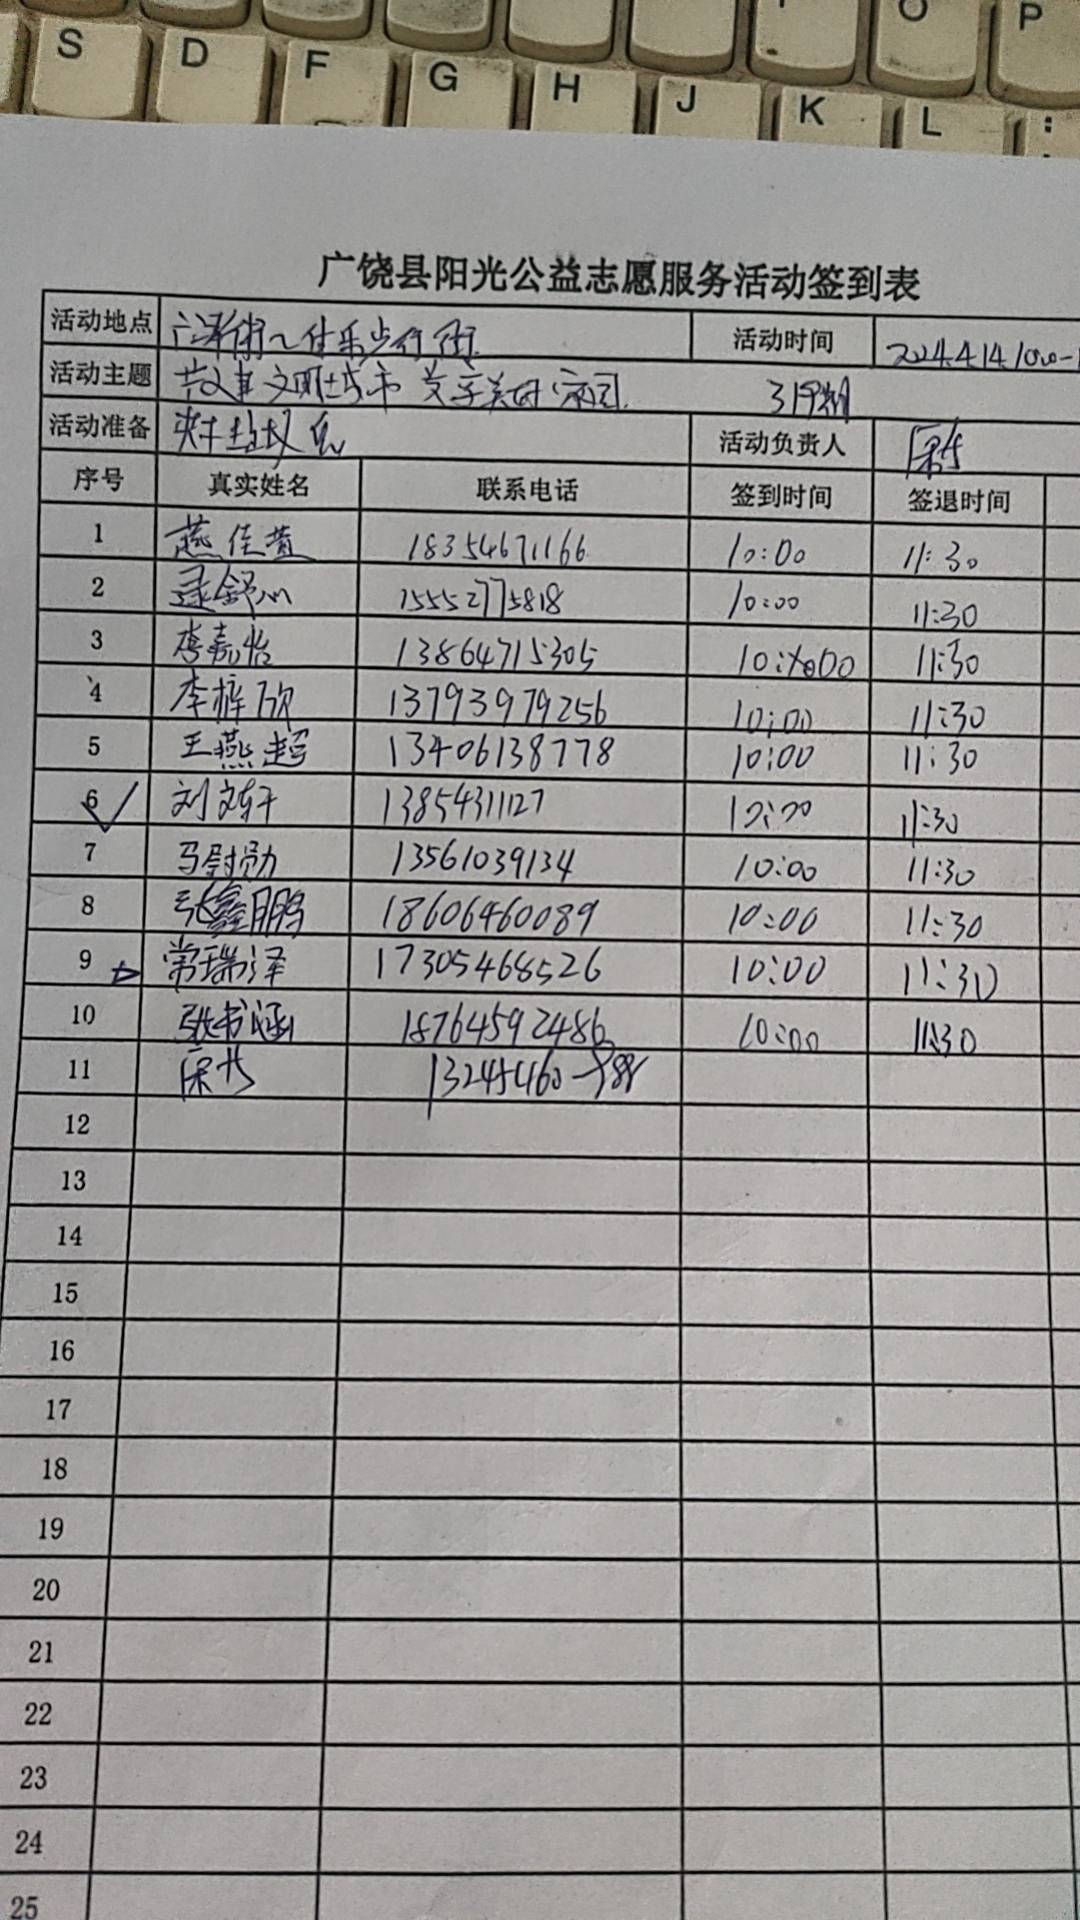 S D F G H J K L : O P
广饶县阳光公益志愿服务活动签到表
活动地点 步行街 活动时间 2024.4.14 10:00-1
活动主题 共建文明城市 共享美好家园 319期
活动准备 活动负责人
序号 真实姓名 联系电话 签到时间 签退时间
1 燕佳萱 18354671166 10:00 11:30
2 舒心 15552775818 10:00 11:30
3 李嘉怡 13864715305 10:00 11:30
4 李梓欣 13793979256 10:00 11:30
5 王燕超 13406138778 10:00 11:30
6 刘文轩 13854311127 10:00 11:30
7 马尉勋 13561039134 10:00 11:30
8 张鑫鹏 18606460089 10:00 11:30
9 常瑞泽 17305468526 10:00 11:30
10 张书涵 18764592486 10:00 11:30
11
12
13
14
15
16
17
18
19
20
21
22
23
24
25